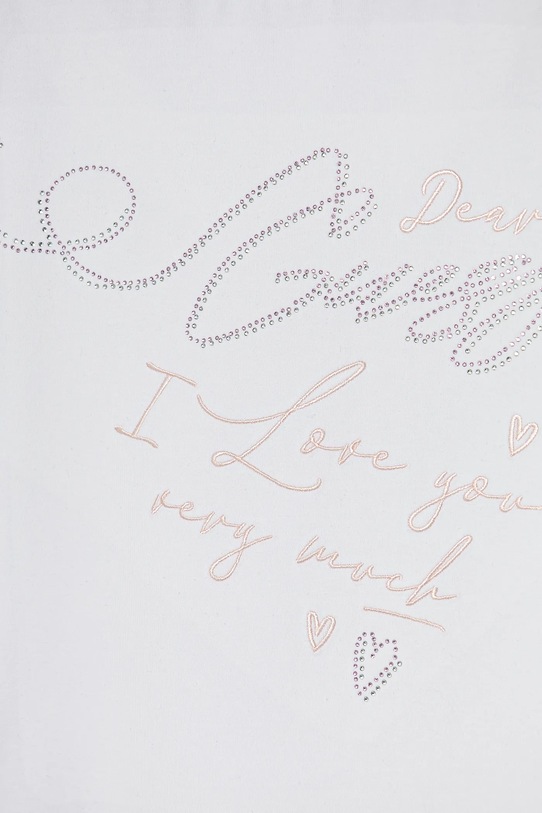 Dear
I Love you
very much